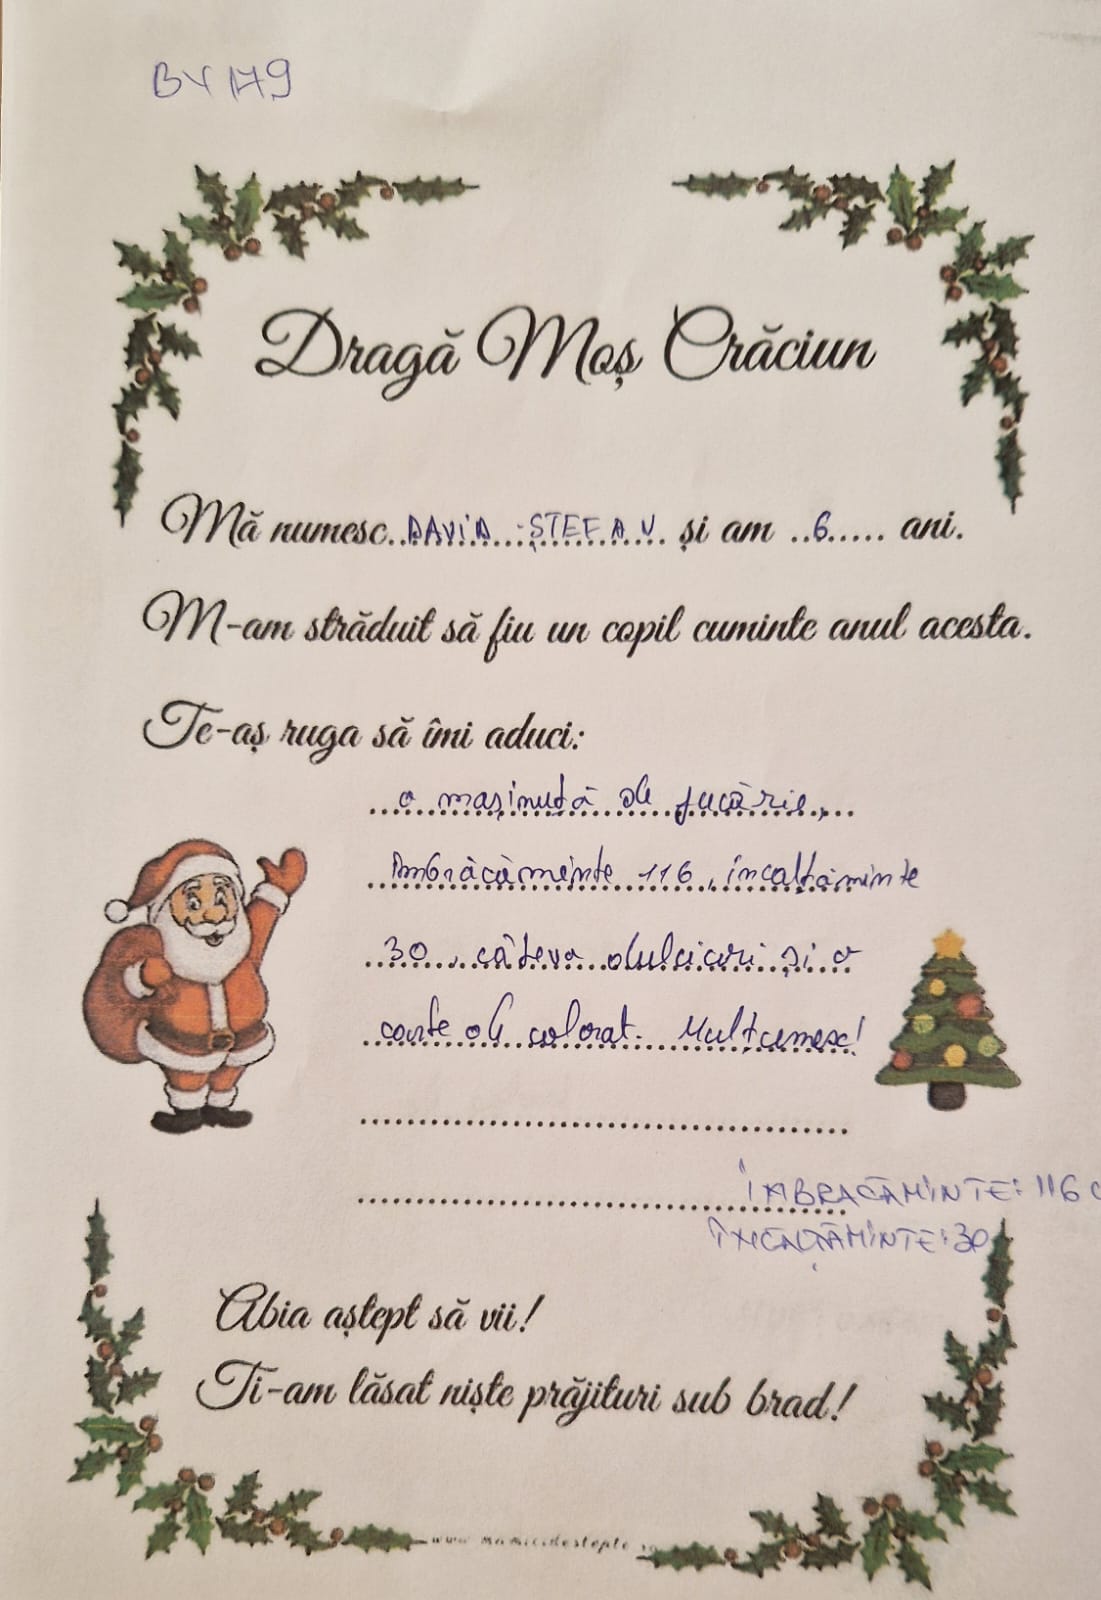 BV 179
Dragă Moș Crăciun
Mă numesc DAVID-ȘTEFAN și am 6 ani.
M-am străduit să fiu un copil cuminte anul acesta.
Te-aș ruga să îmi aduci:
o mașinuță de jucărie,
îmbrăcăminte 116, încalțăminte
30, câteva dulciuri și o
carte de colorat. Mulțumesc!
ÎMBRACĂMINTE: 116
ÎNCALȚĂMINTE: 30
Abia aștept să vii!
Ti-am lăsat niște prăjituri sub brad!
www.mamicidestepte.ro